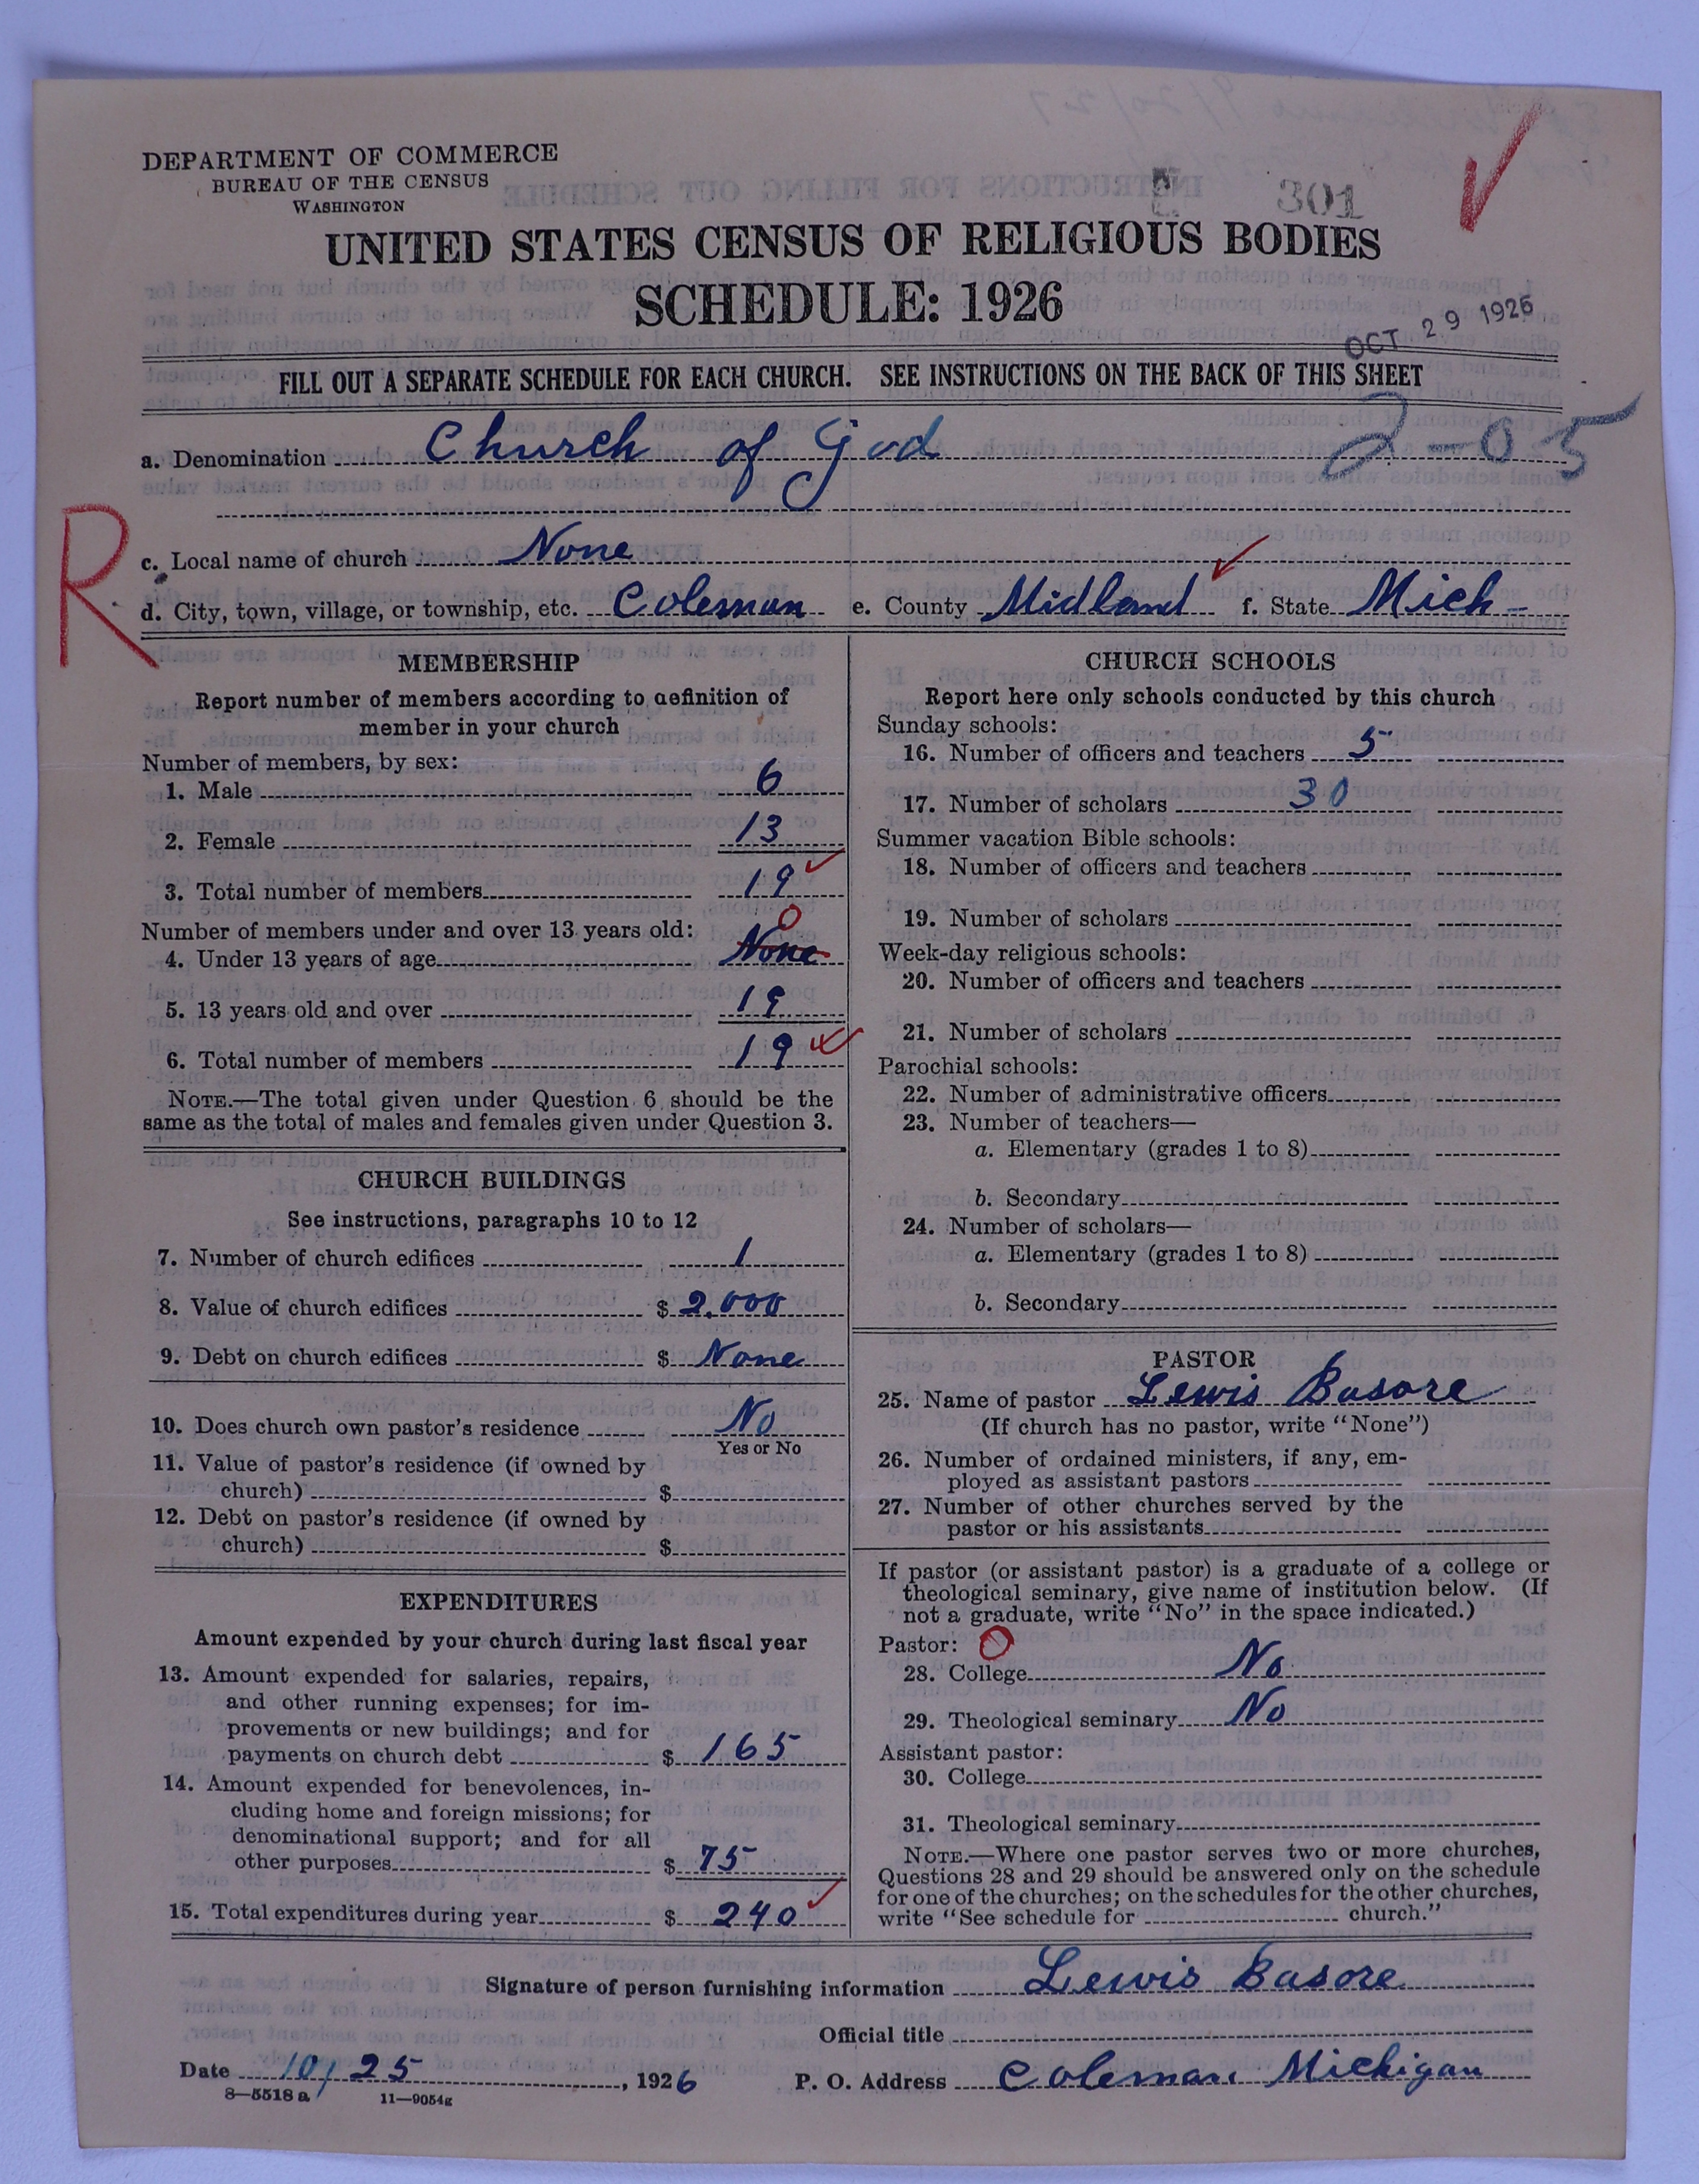 DEPARTMENT OF COMMERCE
BUREAU OF THE CENSUS
WASHINGTON
301
UNITED STATES CENSUS OF RELIGIOUS BODIES
SCHEDULE: 1926
OCT 29 1926
FILL OUT A SEPARATE SCHEDULE FOR EACH CHURCH. SEE INSTRUCTIONS ON THE BACK OF THIS SHEET
a. Denomination Church of God 2-05
R
c. Local name of church None
d. City, town, village, or township, etc. Coleman e. County Midland f. State Mich-
MEMBERSHIP
Report number of members according to definition of
member in your church
Number of members, by sex:
1. Male 6
2. Female 13
3. Total number of members 19
Number of members under and over 13 years old: 0
4. Under 13 years of age None
5. 13 years old and over 19
6. Total number of members 19
NOTE.—The total given under Question 6 should be the
same as the total of males and females given under Question 3.
CHURCH BUILDINGS
See instructions, paragraphs 10 to 12
7. Number of church edifices 1
8. Value of church edifices $ 2,000
9. Debt on church edifices $ None
10. Does church own pastor's residence No
Yes or No
11. Value of pastor's residence (if owned by
church) $
12. Debt on pastor's residence (if owned by
church) $
EXPENDITURES
Amount expended by your church during last fiscal year
13. Amount expended for salaries, repairs,
and other running expenses; for im-
provements or new buildings; and for
payments on church debt $ 165
14. Amount expended for benevolences, in-
cluding home and foreign missions; for
denominational support; and for all
other purposes $ 75
15. Total expenditures during year $ 240
CHURCH SCHOOLS
Report here only schools conducted by this church
Sunday schools:
16. Number of officers and teachers 5
17. Number of scholars 30
Summer vacation Bible schools:
18. Number of officers and teachers
19. Number of scholars
Week-day religious schools:
20. Number of officers and teachers
21. Number of scholars
Parochial schools:
22. Number of administrative officers
23. Number of teachers—
a. Elementary (grades 1 to 8)
b. Secondary
24. Number of scholars—
a. Elementary (grades 1 to 8)
b. Secondary
PASTOR
25. Name of pastor Lewis Basore
(If church has no pastor, write "None")
26. Number of ordained ministers, if any, em-
ployed as assistant pastors
27. Number of other churches served by the
pastor or his assistants
If pastor (or assistant pastor) is a graduate of a college or
theological seminary, give name of institution below. (If
not a graduate, write "No" in the space indicated.)
Pastor: O
28. College No
29. Theological seminary No
Assistant pastor:
30. College
31. Theological seminary
NOTE.—Where one pastor serves two or more churches,
Questions 28 and 29 should be answered only on the schedule
for one of the churches; on the schedules for the other churches,
write "See schedule for church."
Signature of person furnishing information Lewis Basore
Official title
Date 10/25, 1926 P. O. Address Coleman Michigan
8—5518a 11—9054g